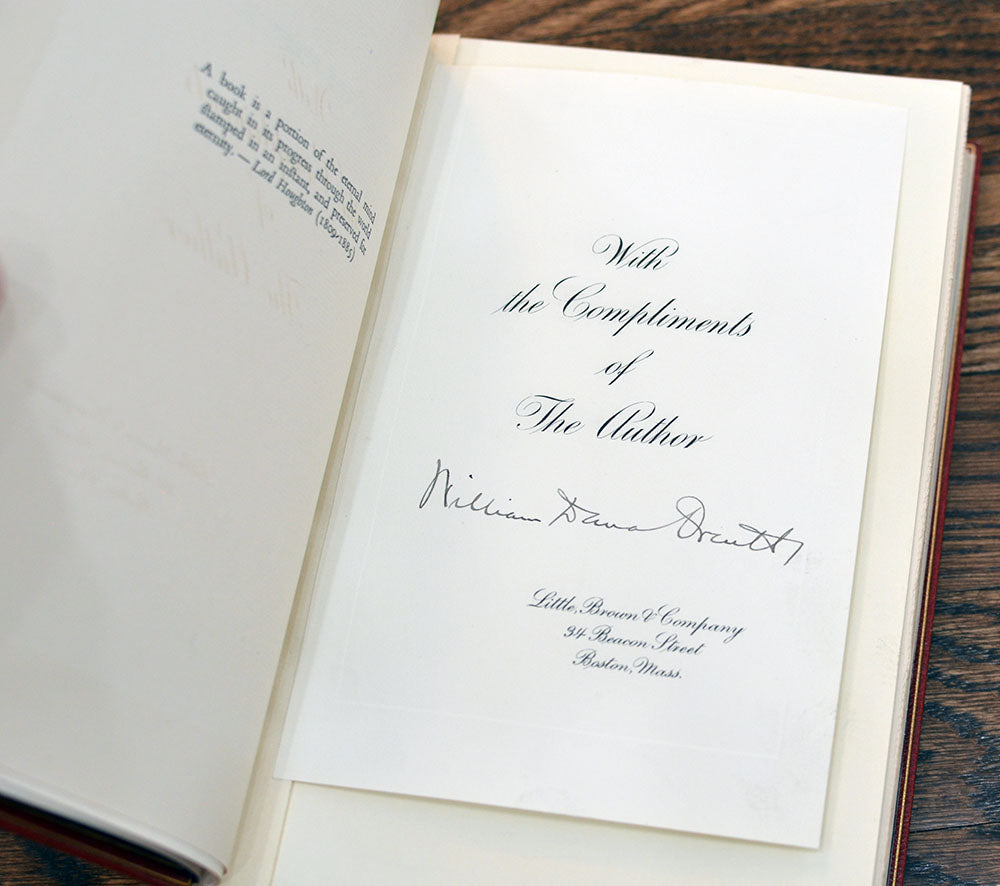 A book is a portion of the eternal mind
caught in its progress through the world
stamped in an instant, and preserved for
eternity. — Lord Houghton (1809-1885)
With
the Compliments
of
The Author
William Dana Orcutt
Little, Brown & Company
34 Beacon Street
Boston, Mass.